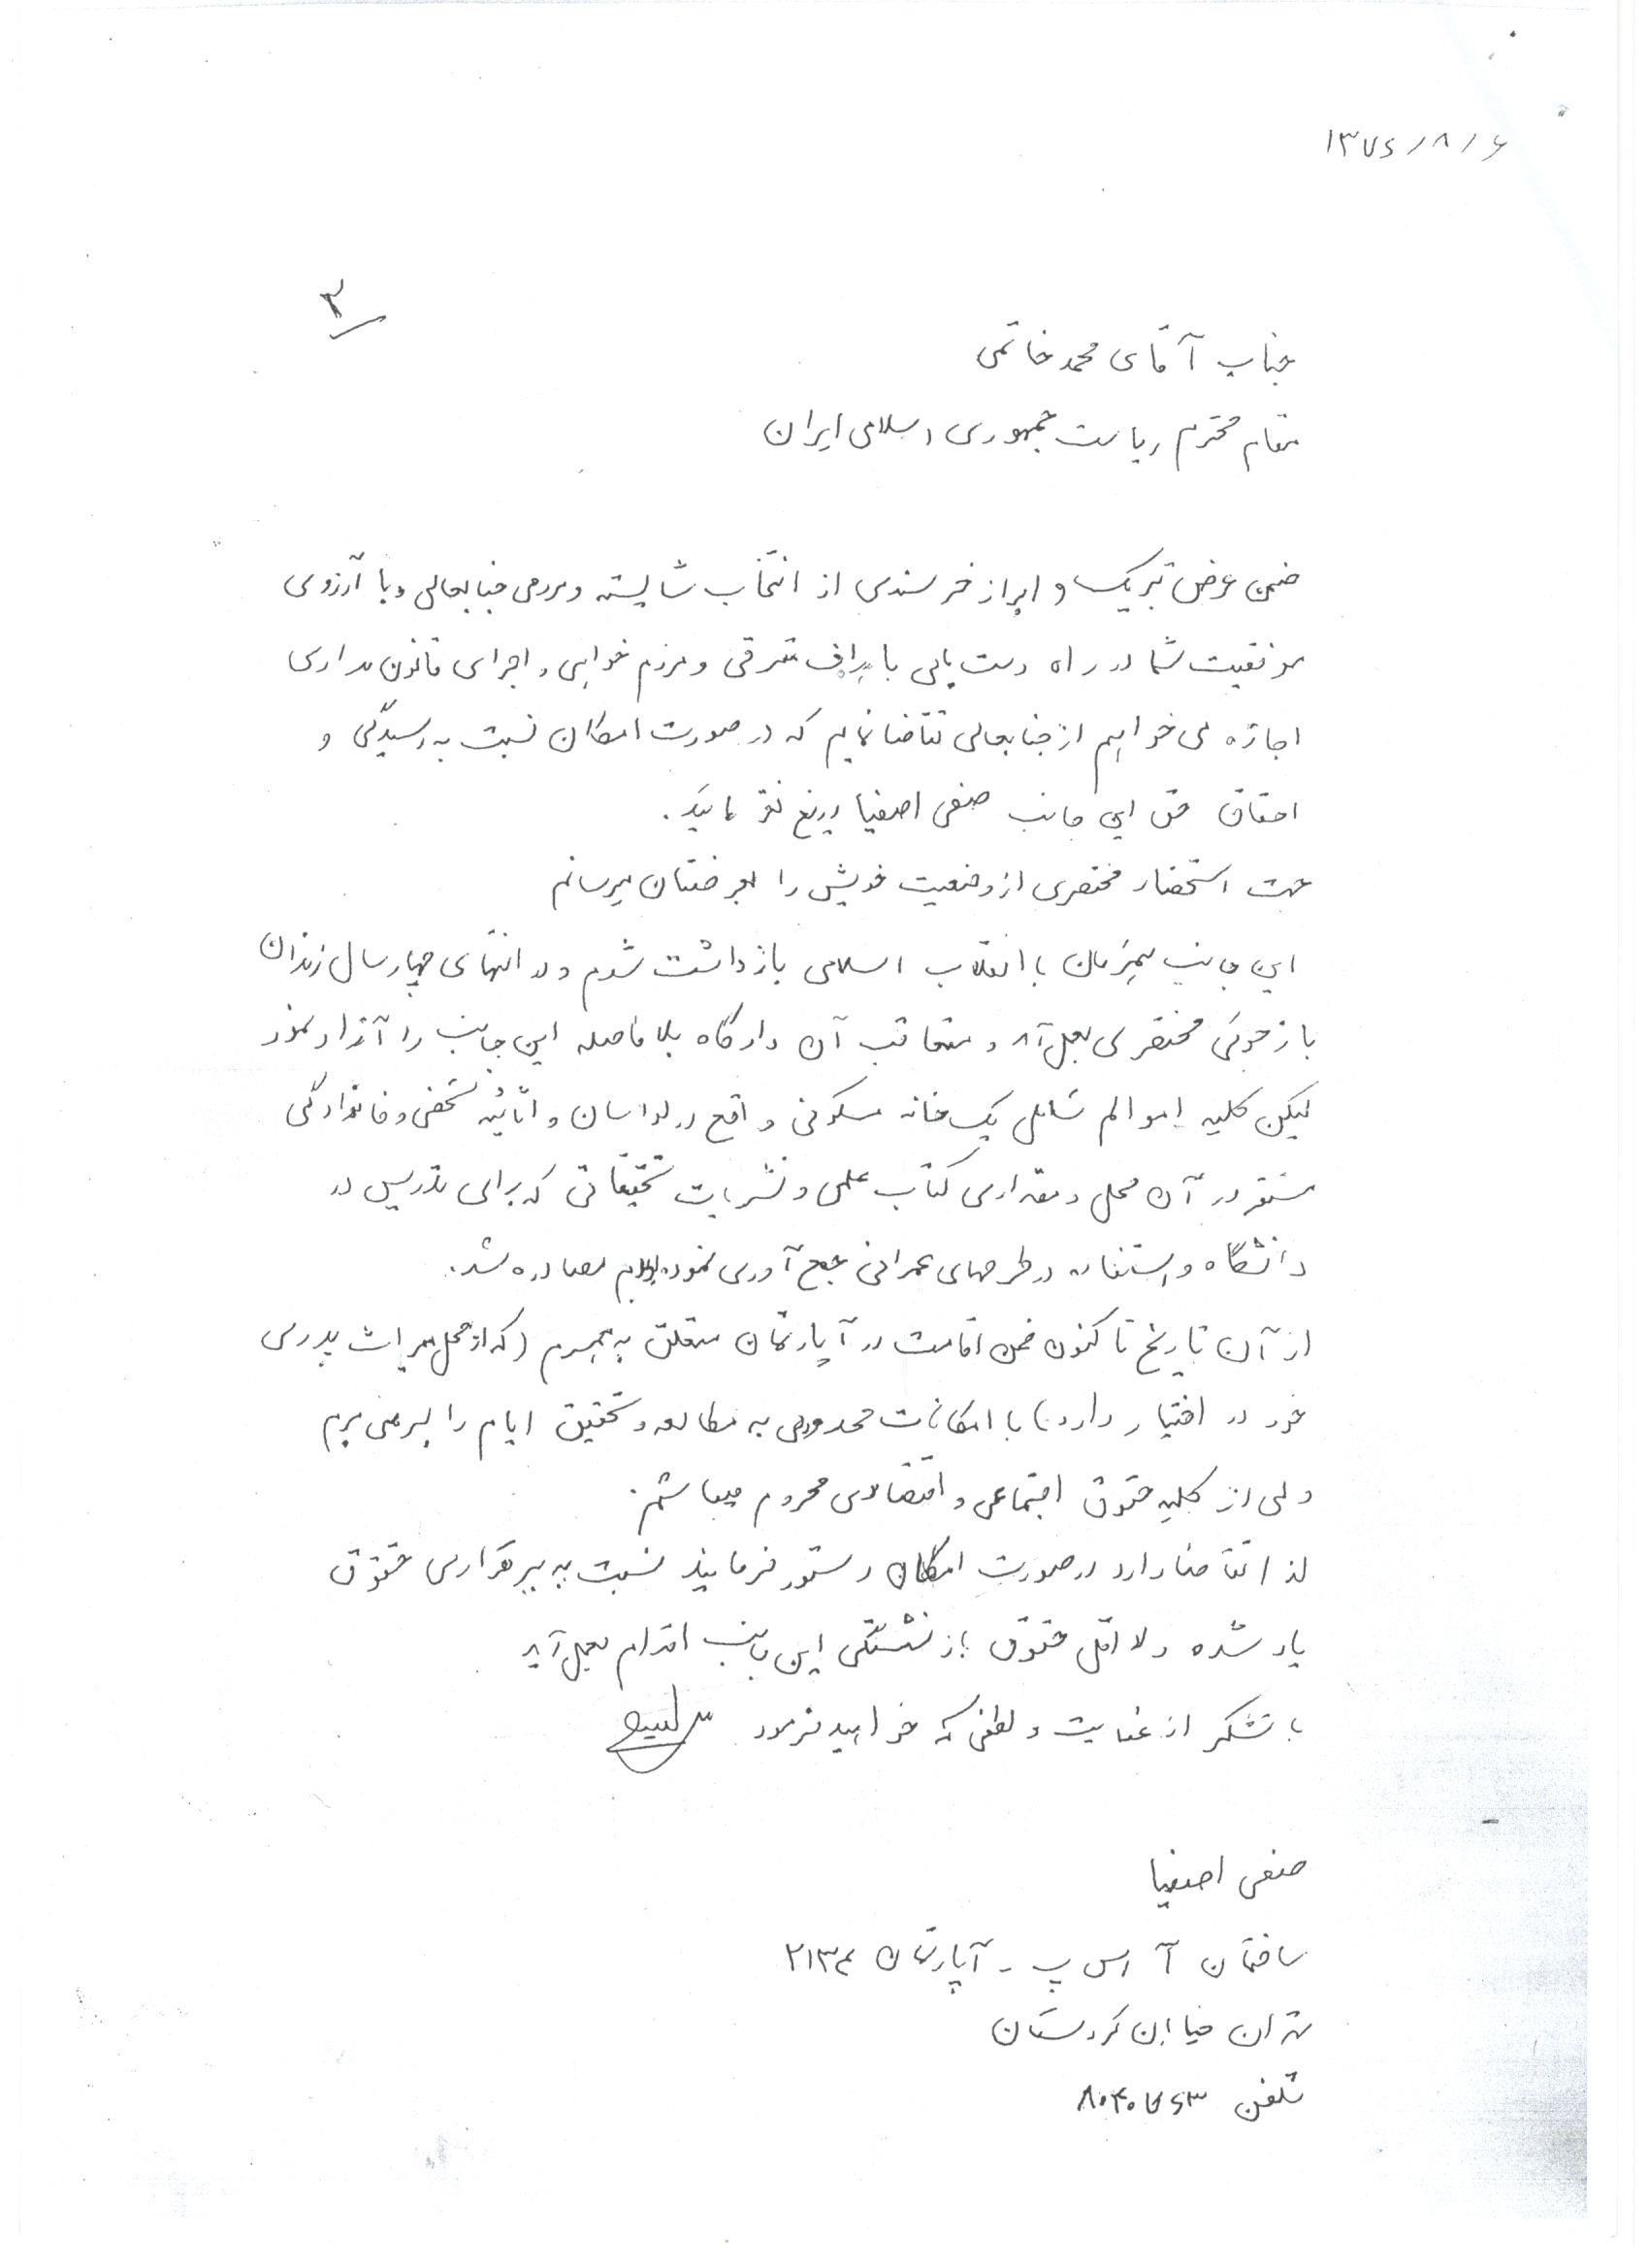 ۱۳۷۶/۸/۶
۳
جناب آقای محمد خاتمی
مقام محترم ریاست جمهوری اسلامی ایران
ضمن عرض تبریک و ابراز خرسندی از انتخاب شایسته و مردمی جنابعالی و با آرزوی
موفقیت شما در راه دست یابی باهداف مترقی و مردم خواهی و اجرای قانون مداری
اجازه می خواهم از جنابعالی تقاضا نمایم که در صورت امکان نسبت به رسیدگی و
احقاق حق این جانب صفی اصفیا دریغ نفرمایید.
جهت استحضار مختصری از وضعیت خویش را بعرضتان میرسانم
این جانب همزمان با انقلاب اسلامی بازداشت شدم و در انتهای چهار سال زندان
بازجوئی مختصری بعمل آمد و متعاقب آن دادگاه بلافاصله این جانب را آزاد نمود
لیکن کلیه اموالم شامل یک خانه مسکونی واقع در لواسان و اثاثیه شخصی و خانوادگی
مستقر در آن محل و مقداری کتاب علمی و نشریات تحقیقاتی که برای تدریس در
دانشگاه و استفاده در طرحهای عمرانی جمع آوری نموده بودم مصادره شد.
از آن تاریخ تا کنون ضمن اقامت در آپارتمان متعلق به همسرم (که از محل میراث پدری
خود در اختیار دارد) با امکانات محدودی به مطالعه و تحقیق ایام را بسر می برم
ولی از کلیه حقوق اجتماعی و اقتصادی محروم میباشم.
لذا تقاضا دارد در صورت امکان دستور فرمایند نسبت به برقراری حقوق
یاد شده و لااقل حقوق بازنشستگی این جانب اقدام بعمل آید
با تشکر از عنایت و لطفی که خواهید فرمود
صفی اصفیا
ساختمان آ اس پ - آپارتمان ۲۱۳۴
تهران خیابان کردستان
تلفن ۸۰۴۰۷۶۳